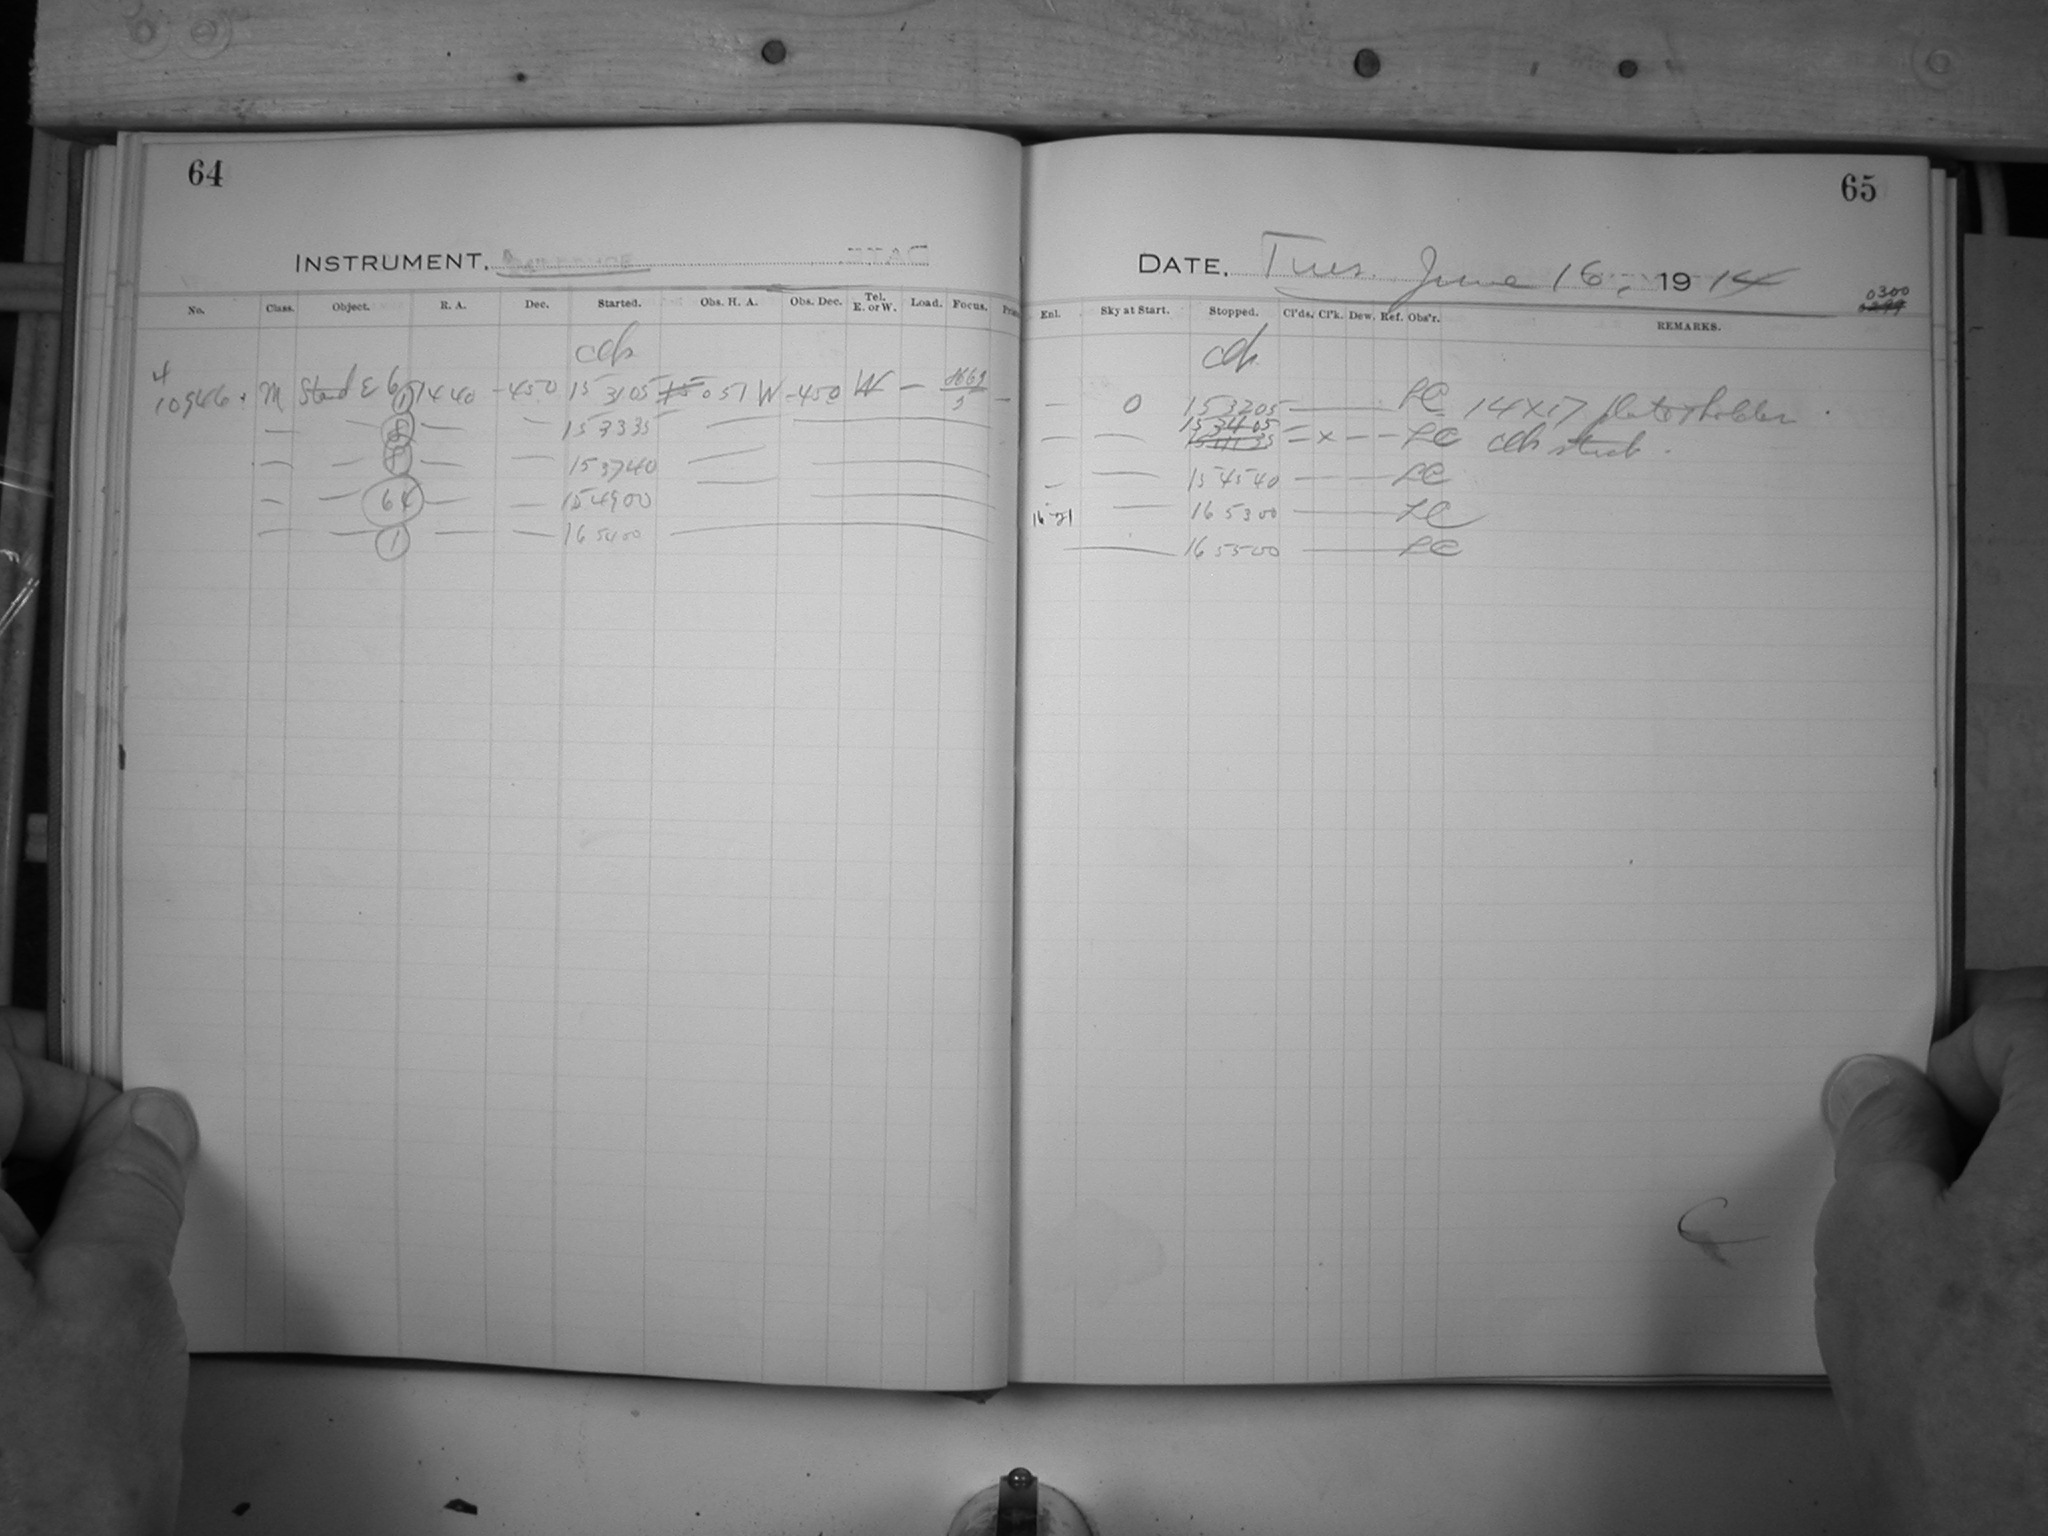 64
INSTRUMENT.
No. Class. Object. R. A. Dec. Started. Obs. H. A. Obs. Dec. Tel. E. or W. Load. Focus.
10946. M Stand E 6 1 1440 -450 153105 051 W -450 W —
— — 8 — — 153335
— — 8 — 153740
— — 64 — — 154900
— — 1 — — 165400
65
DATE. Tues. June 16, 1914
0300
Enl. Sky at Start. Stopped. Cl'ds. Cl'k. Dew. Ref. Obs'r. REMARKS.
— 0 153205 — LC 14x17 plateholder.
— — 153405 — x — — LC
— — 154540 — LC
16 21 — 165300 — LC
— 165500 — LC